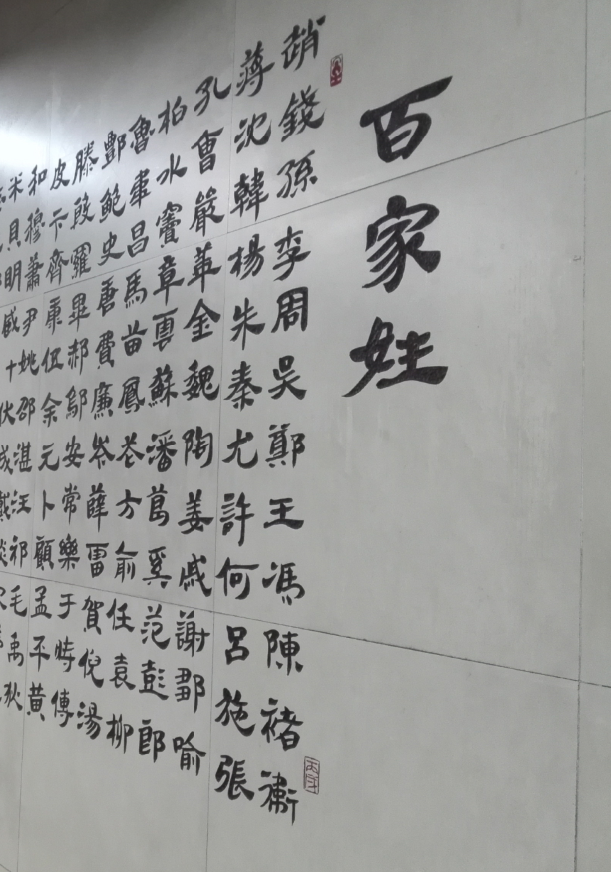 百家姓
趙錢孫李周吳鄭王馮陳褚衛
蔣沈韓楊朱秦尤許何呂施張
孔會嚴華金魏陶姜戚謝鄒喻
柏水竇章雲蘇潘葛奚范彭郎
魯韋昌馬苗鳳花方俞任袁柳
酆鮑史唐費廉岑薛雷賀倪湯
滕殷羅畢郝鄔安常樂于時傅
皮卞齊康伍余元卜顧孟平黃
和穆蕭尹姚邵湛汪祁毛禹狄
米貝明臧伏成戴